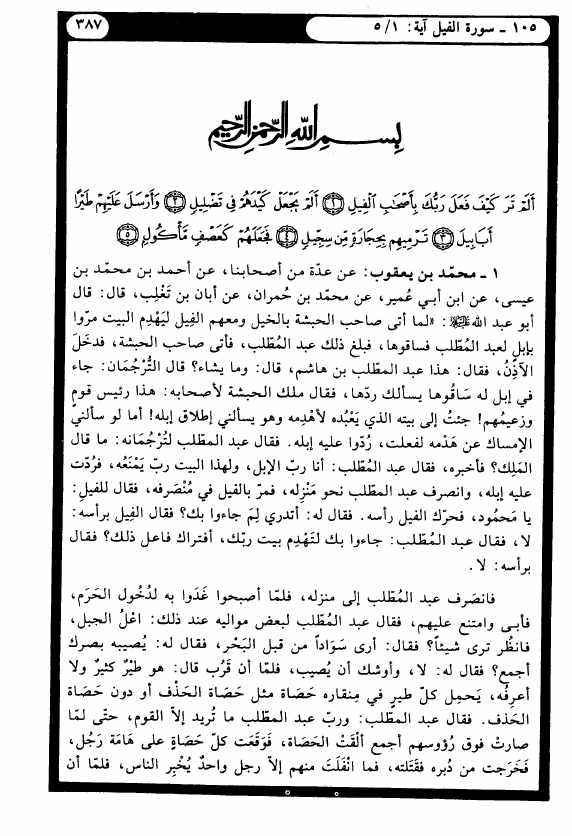 ١٠٥ ـ سورة الفيل آية: ١/ ٥
٣٨٧
بِسْمِ اللَّهِ الرَّحْمَنِ الرَّحِيمِ
أَلَمْ تَرَ كَيْفَ فَعَلَ رَبُّكَ بِأَصْحَابِ الْفِيلِ ﴿١﴾ أَلَمْ يَجْعَلْ كَيْدَهُمْ فِي تَضْلِيلٍ ﴿٢﴾ وَأَرْسَلَ عَلَيْهِمْ طَيْرًا
أَبَابِيلَ ﴿٣﴾ تَرْمِيهِم بِحِجَارَةٍ مِّن سِجِّيلٍ ﴿٤﴾ فَجَعَلَهُمْ كَعَصْفٍ مَّأْكُولٍ ﴿٥﴾
١ ـ محمّد بن يعقوب: عن عدّة من أصحابنا، عن أحمد بن محمّد بن
عيسى، عن ابن أبي عُمير، عن محمّد بن حُمران، عن أبان بن تَغْلِب، قال: قال
أبو عبد الله عليه السلام: «لما أتى صاحب الحبشة بالخيل ومعهم الفِيل ليَهْدِم البيت مرّوا
بإبلٍ لعبد المُطّلب فساقوها، فبلغ ذلك عبد المُطّلب، فأتى صاحب الحبشة، فدخَلَ
الآذِنُ، فقال: هذا عبد المطّلب بن هاشم، قال: وما يشاء؟ قال التُّرْجُمَان: جاء
في إبل له سَاقُوها يسألك ردّها، فقال ملك الحبشة لأصحابه: هذا رئيس قومٍ
وزعيمُهم! جئتُ إلى بيته الذي يَعْبُده لأهْدِمه وهو يسألني إطلاق إبله! أما لو سألني
الإمساك عن هَدْمه لفعلت، رُدّوا عليه إبله. فقال عبد المطّلب لتُرْجُمَانه: ما قال
المَلِك؟ فأخبره، فقال عبد المُطّلب: أنا ربّ الإبل، ولهذا البيت ربّ يَمْنَعُه، فرُدّت
عليه إبله، وانصرف عبد المطّلب نحو مَنْزِله، فمرّ بالفيل في مُنْصَرفه، فقال للفيل:
يا مَحمُود، فحرّك الفيل رأسه. فقال له: أتدري لِمَ جاءوا بك؟ فقال الفِيل برأسه:
لا، فقال عبد المُطّلب: جاءوا بك لتَهْدِم بيت ربّك، أفتراك فاعل ذلك؟ فقال
برأسه: لا.
فانصَرف عبد المطّلب إلى منزله، فلمّا أصبحوا غَدَوا به لدُخُول الحَرَم،
فأبى وامتنع عليهم، فقال عبد المطّلب لبعض مواليه عند ذلك: اعْلُ الجبل،
فانظُر ترى شيئاً؟ فقال: أرى سَوَاداً من قبل البَحْر، فقال له: يُصيبه بصرك
أجمع؟ فقال له: لا، وأوشك أن يُصيب، فلمّا أن قَرُب قال: هو طَيْرٌ كثيرٌ ولا
أعرِفُه، يَحمِل كلّ طير في مِنقاره حَصَاة مثل حَصَاة الحَذْف أو دون حَصَاة
الحَذف. فقال عبد المطّلب: وربّ عبد المطّلب ما تُريد إلاّ القوم، حتى لمّا
صارتْ فوق رُؤوسهم أجمع ألْقَتْ الحَصَاة، فوَقَعَت كلّ حَصَاةٍ على هَامَة رَجُل،
فَخَرجت من دُبره فقَتَلته، فما انْفَلَتَ منهم إلاّ رجل واحدٌ يُخْبِر الناس، فلمّا أن